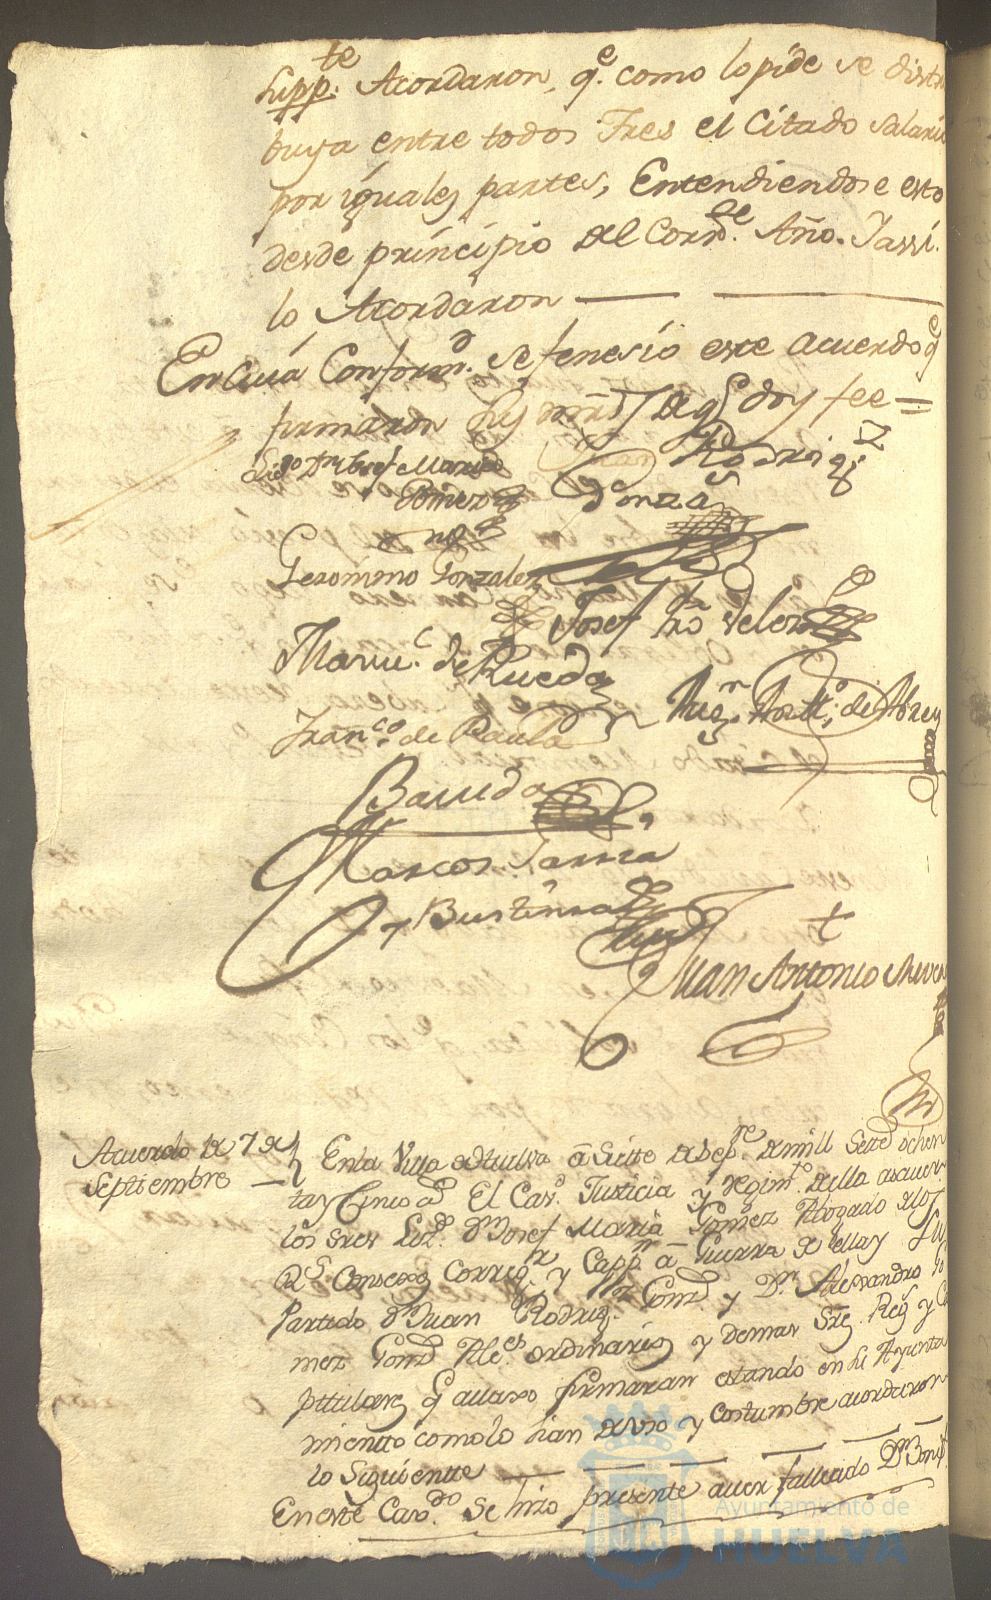 supp.te Acordaron, q.e como lo pide se distri
buya entre todos Tres el Citado Salario
por iguales partes, Entendiendose esto
desde principio del Corr.te Año. Y assi
lo Acordaron
En Cuia Conform.d se fenesio este acuerdo q.e
firmaron sus mrds de q.e doy fee =
Juan Rodrig.z
Gonza.s
Gomez
Geronimo Gonzalez
Josef
Manu.l de Rueda
de Abreu
Fran.co de Paula
Barreda
Marcos
y Bustinza
Juan Antonio
Acuerdo de 7 de
Septiembre
En la Villa de Huelva a Siete de Sep.re de mill Sett.s ochen
ta y Cinco a.s El Cav.o Justicia y regim.to della a saver
los sres Liz.do D.n Josef Maria Gomez Abogado de los
R.s Consexos Correg.r y Capp.n a Guerra de ella y Su
Partido D.n Juan Rodrig.z Gonz. y D.n Alessandro Go
mez Gonz. Alc.es ordinarios y demas Sres Reg.s y Ca
pitulares q.e avaxo firmaran estando en su Ayunta
miento como lo han de uso y costumbre acordaron
lo Siguiente
En este Cav.do Se hizo presente aver fallecido D.n
Ayuntamiento de
HUELVA